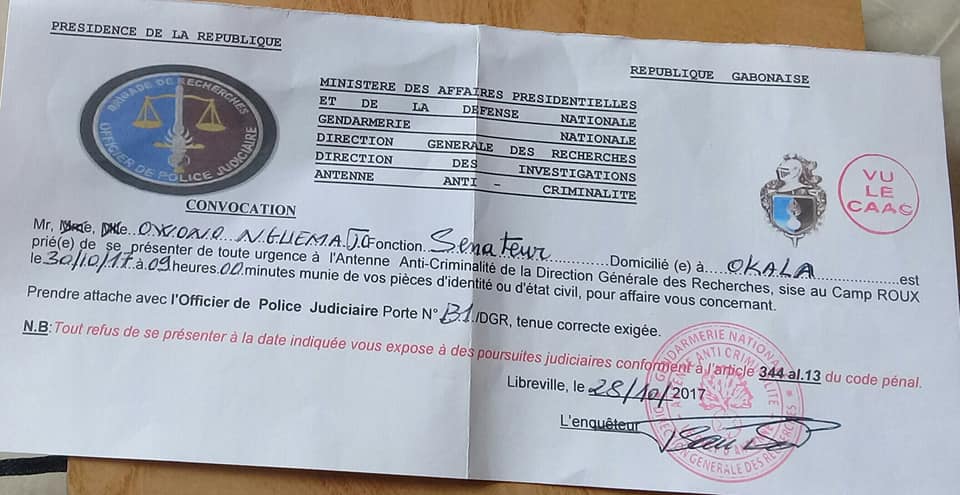 PRESIDENCE DE LA REPUBLIQUE
REPUBLIQUE GABONAISE
BRIGADE DE RECHERCHES
OFFICIER DE POLICE JUDICIAIRE
MINISTERE DES AFFAIRES PRESIDENTIELLES
ET DE LA DEFENSE NATIONALE
GENDARMERIE NATIONALE
DIRECTION GENERALE DES RECHERCHES
DIRECTION DES INVESTIGATIONS
ANTENNE ANTI - CRIMINALITE
VU
LE
CAAC
CONVOCATION
Mr, Mme, Mlle OXIONO NGUEMA J.C Fonction Senateur Domicilié (e) à OKALA est
prié(e) de se présenter de toute urgence à l'Antenne Anti-Criminalité de la Direction Générale des Recherches, sise au Camp ROUX
le 30/10/17 à 09 heures 00 minutes munie de vos pièces d'identité ou d'état civil, pour affaire vous concernant.
Prendre attache avec l'Officier de Police Judiciaire Porte N° B1 /DGR, tenue correcte exigée.
N.B:Tout refus de se présenter à la date indiquée vous expose à des poursuites judiciaires conformément à l'article 344 al.13 du code pénal.
Libreville, le 28/10/2017
L'enquêteur
GENDARMERIE NATIONALE
DIRECTION GENERALE DES RECHERCHES
ANTENNE ANTI CRIMINALITE